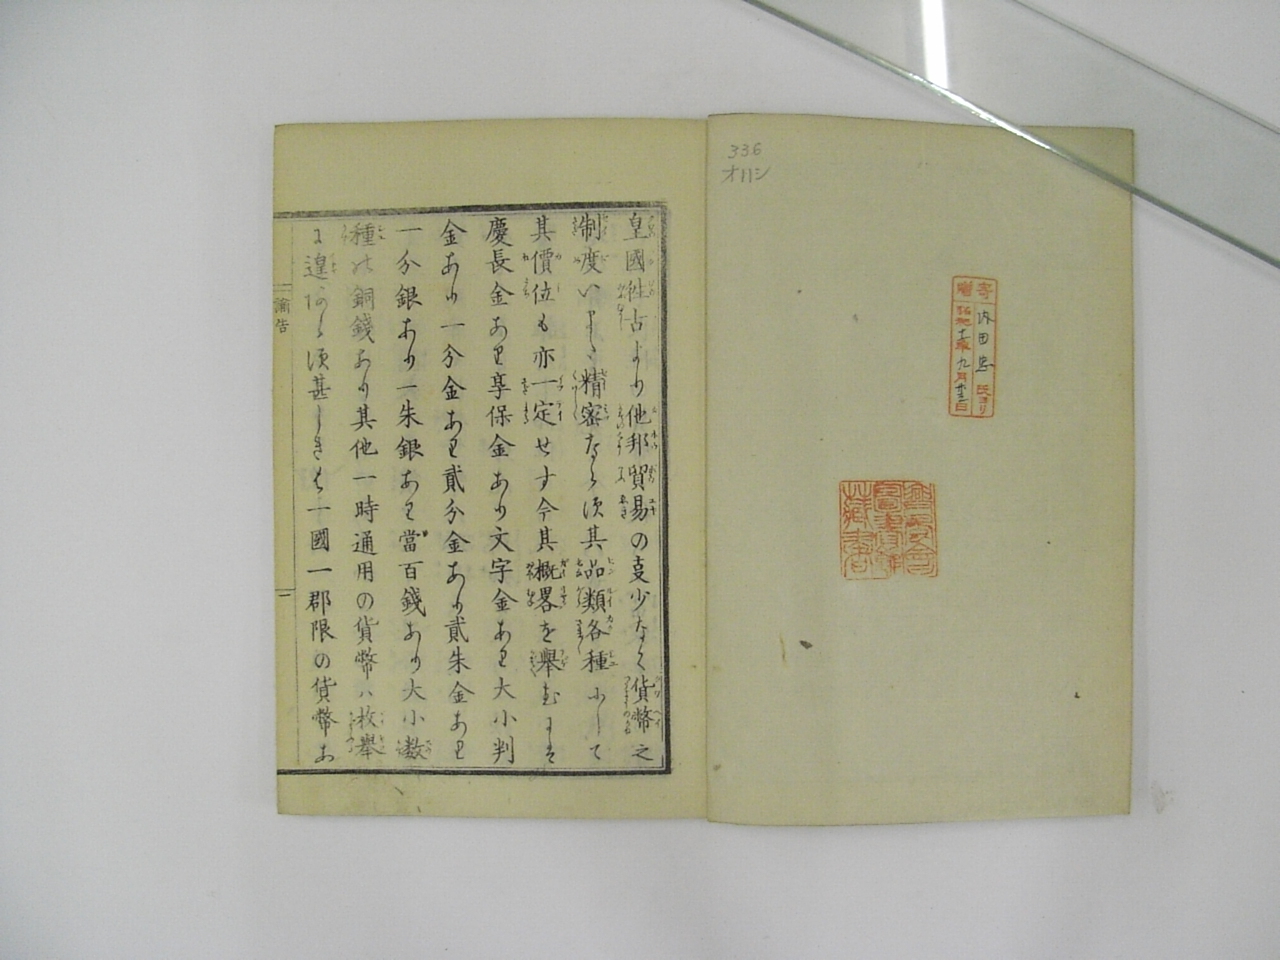 336
オハシ
寄贈
内田 氏ヨリ
昭和十年九月廿三日
圖書館
藏書
皇國往古より他邦貿易の事少なく貨幣之
制度いまた精密ならす其品類各種にして
其價位も亦一定せす今其概畧を舉るに
慶長金あり享保金あり文字金あり大小判
金あり一分金あり貳分金あり貳朱金あり
一分銀あり一朱銀あり當百錢あり大小数
種の銅錢あり其他一時通用の貨幣ハ枚舉
に遑あらす甚しきは一國一郡限の貨幣あ
諭告
一